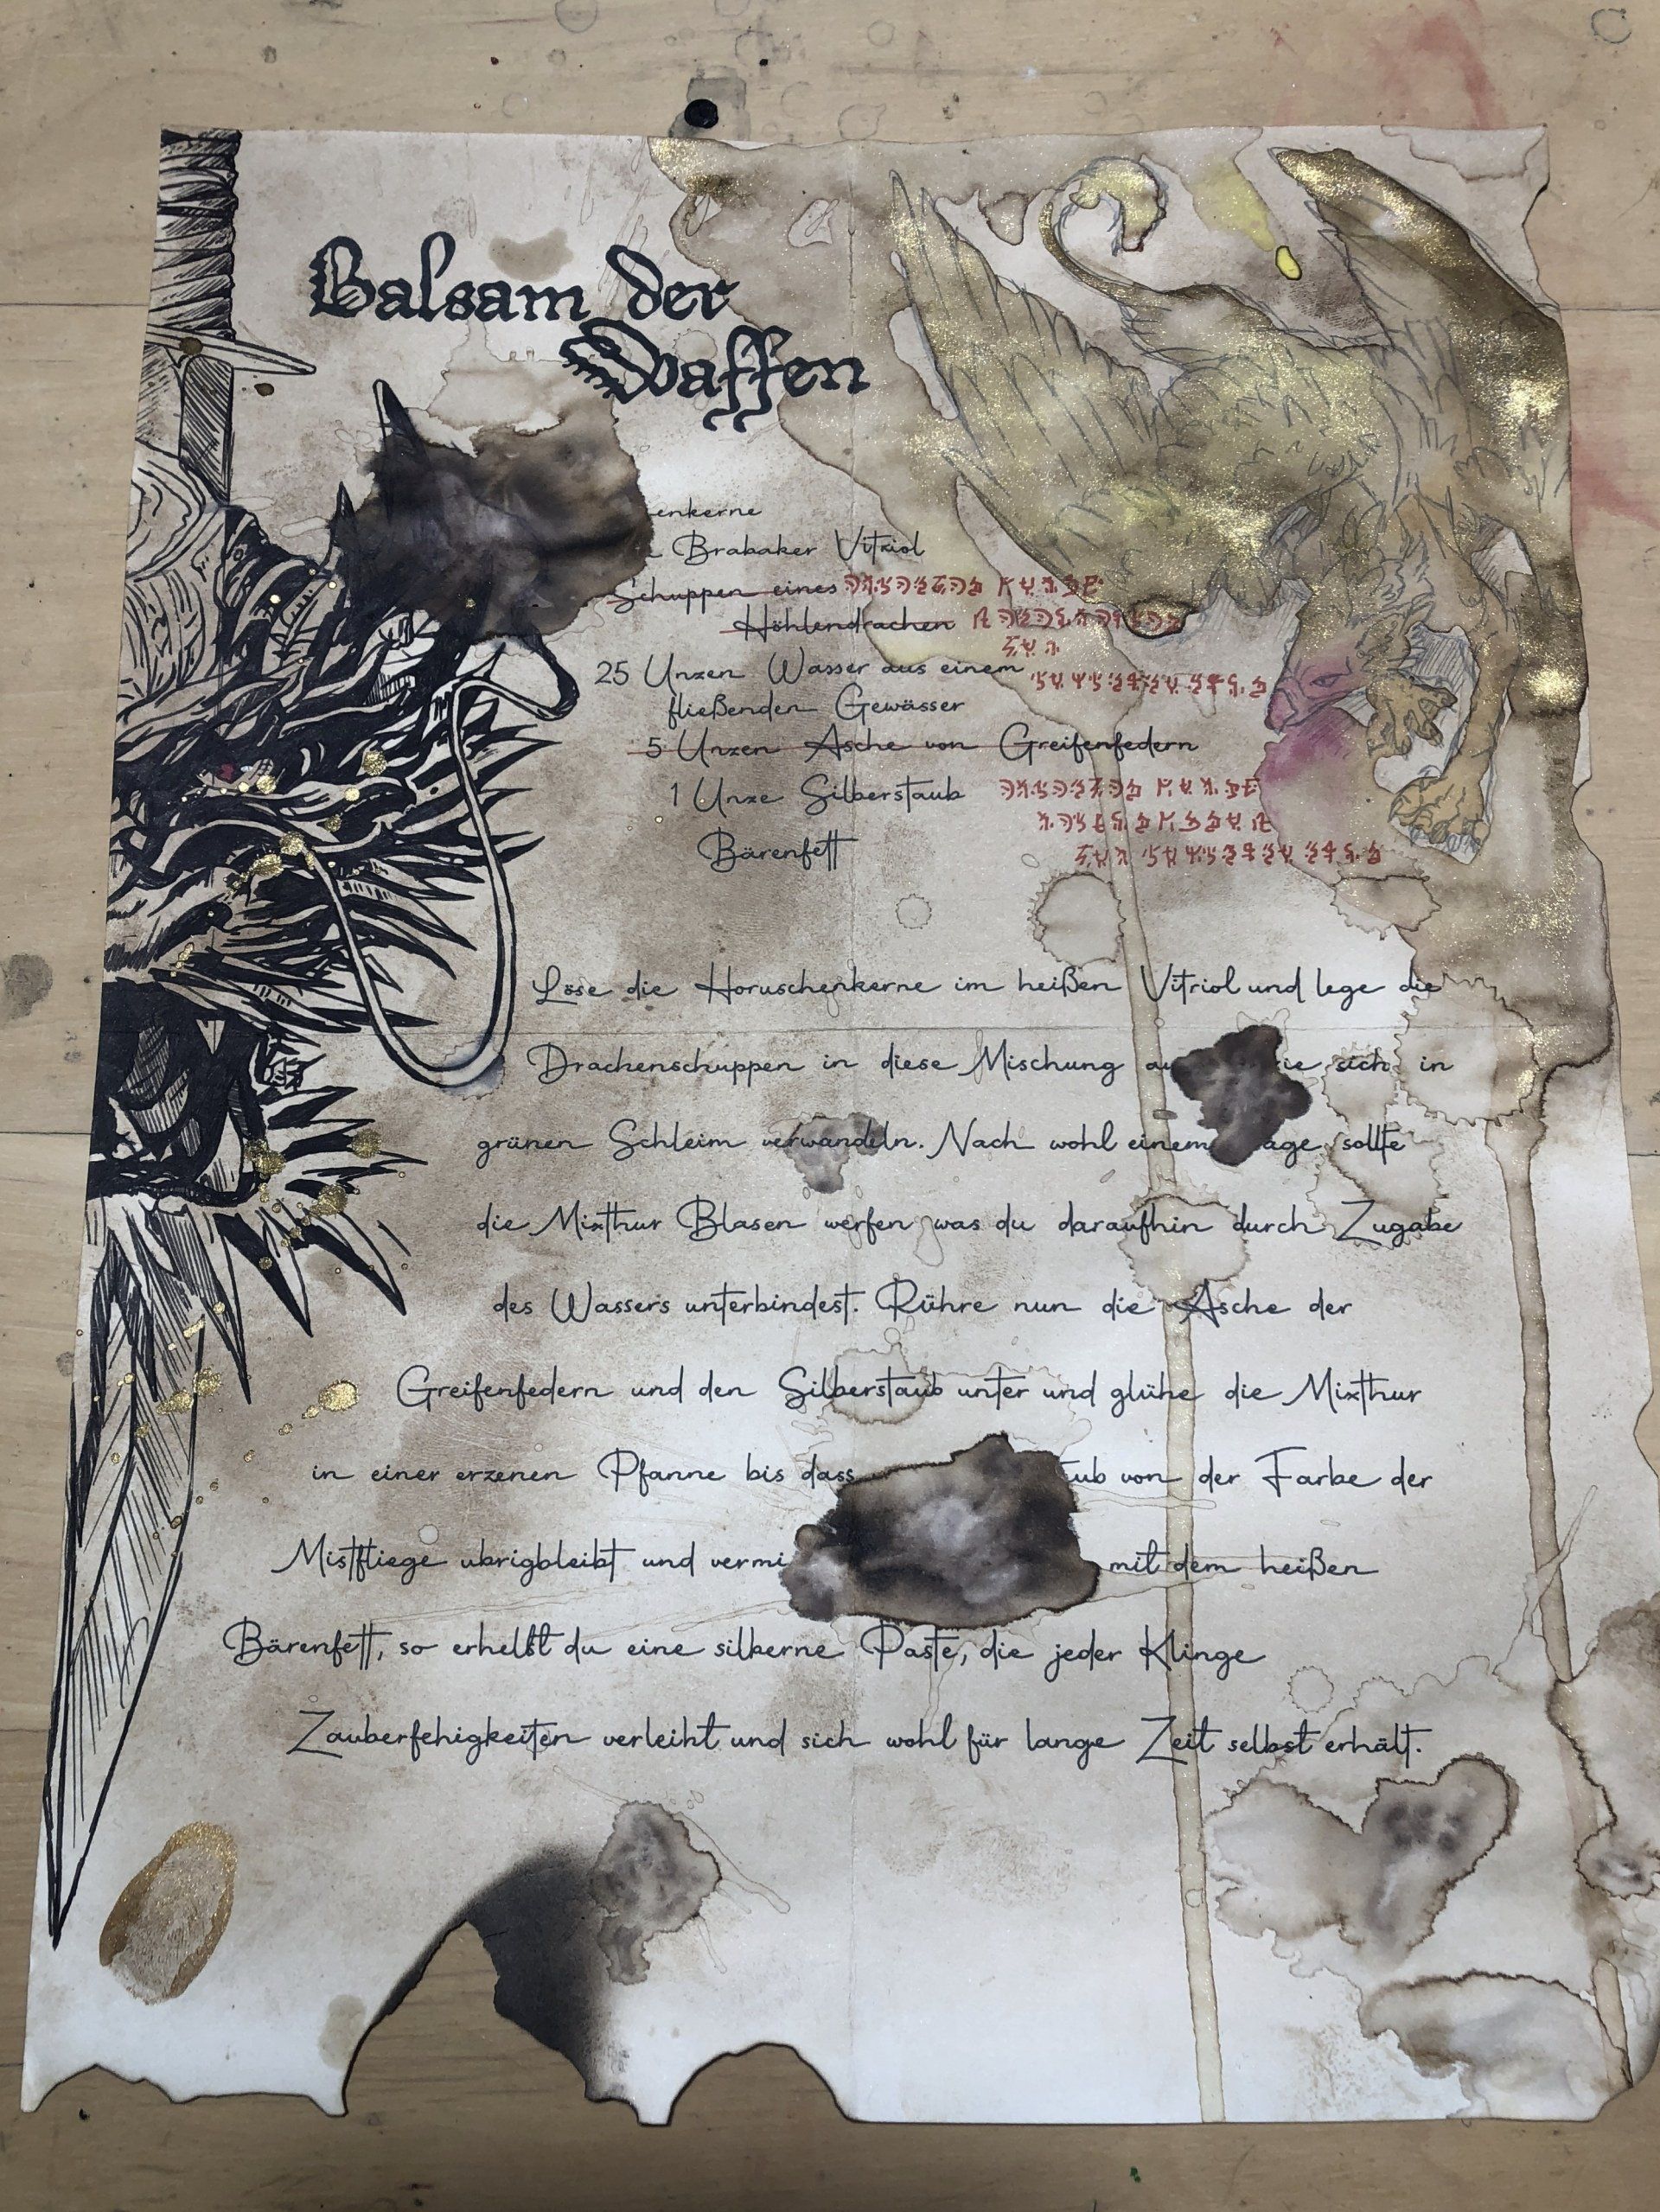 Balsam der
Waffen
enkerne
Brabaker Vitriol
Schuppen eines
Höhlendrachen
25 Unzen Wasser aus einem
fließenden Gewässer
5 Unzen Asche von Greifenfedern
1 Unze Silberstaub
Bärenfett
Löse die Horuschenkerne im heißen Vitriol und lege die
Drachenschuppen in diese Mischung sich in
grünen Schleim verwandeln. Nach wohl einem sollte
die Mixthur Blasen werfen was du daraufhin durch Zugabe
des Wassers unterbindest. Rühre nun die Asche der
Greifenfedern und den Silberstaub unter und glühe die Mixthur
in einer erzenen Pfanne bis dass von der Farbe der
Mistfliege ubrigbleibt und vermi mit dem heißen
Bärenfett, so erhelst du eine silberne Paste, die jeder Klinge
Zauberfehigkeiten verleiht und sich wohl für lange Zeit selbst erhält.